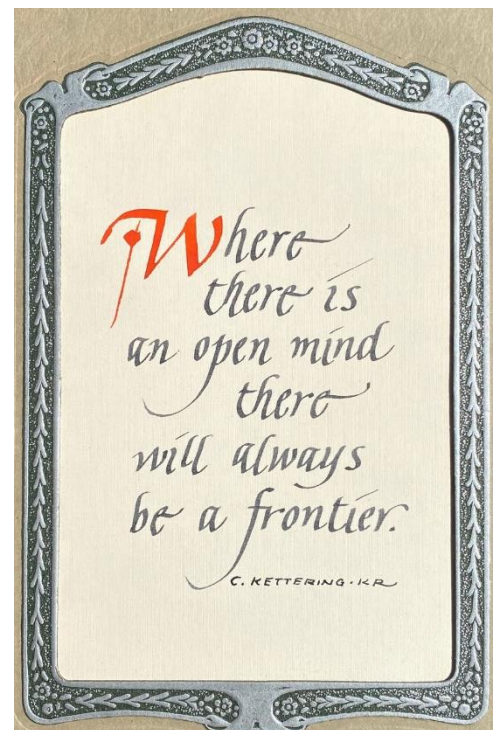 Where
there is
an open mind
there
will always
be a frontier.
C. KETTERING · KR